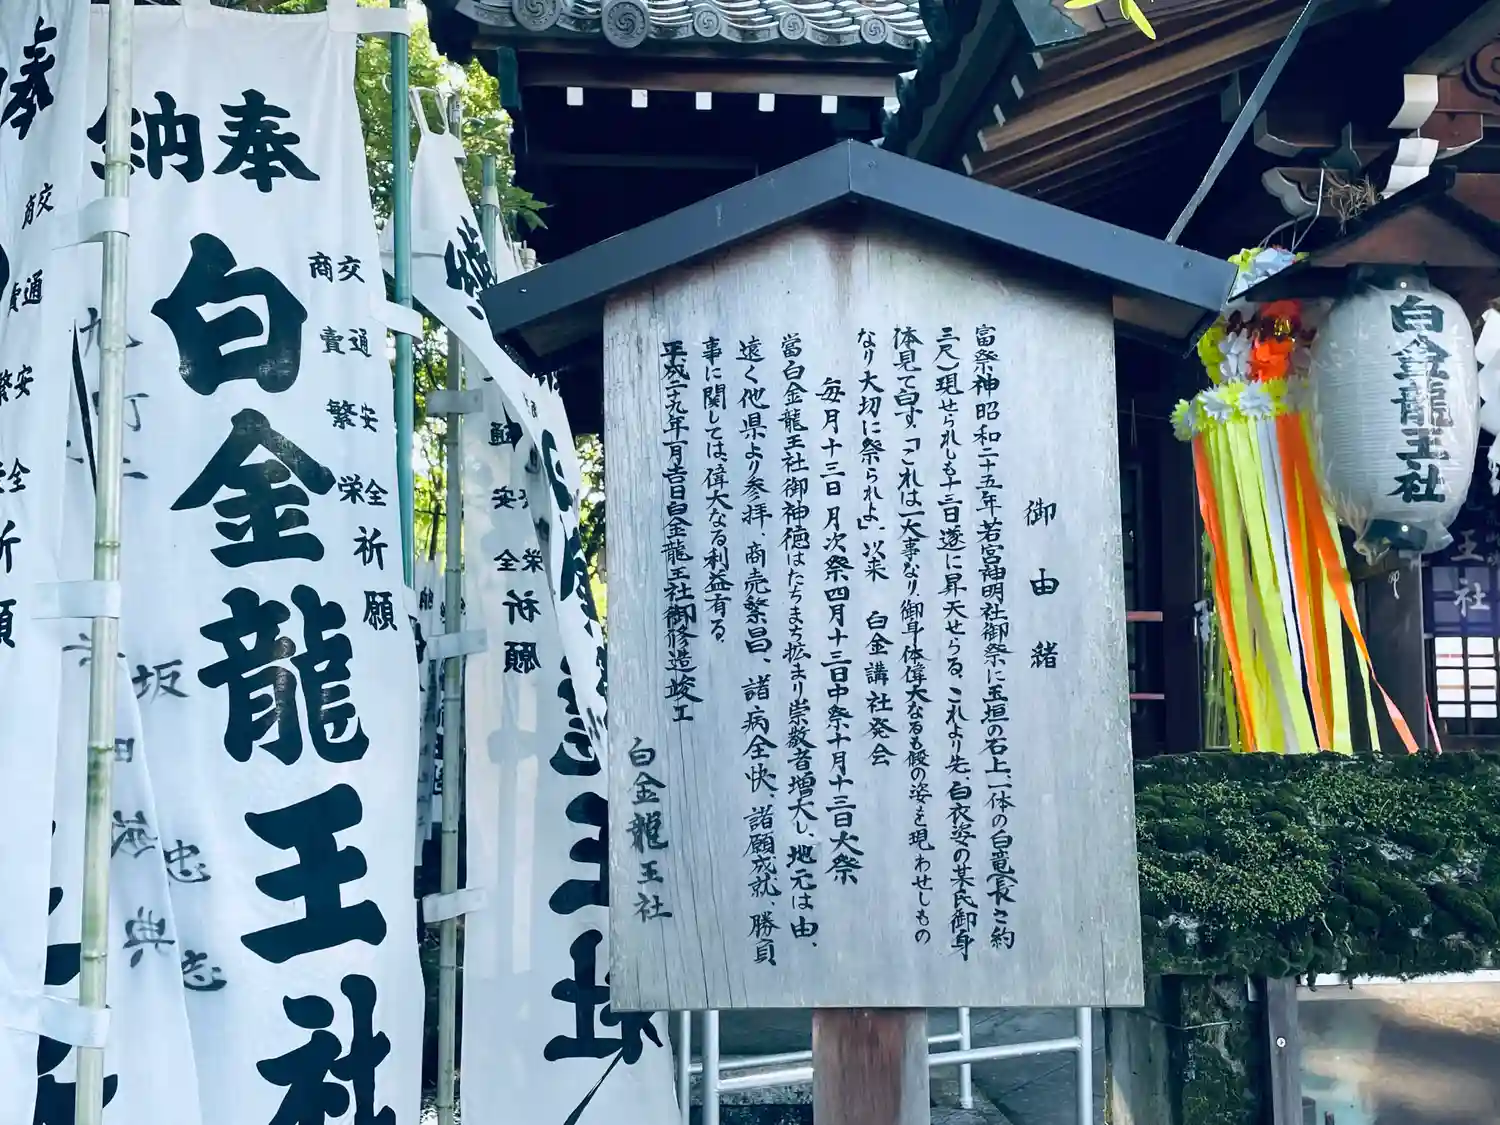 御由緒
富祭神昭和二十五年若宮神明社御祭に玉垣の石上、一体の白竜(長さ約
三尺)現せられしも十三日遂に昇天せらる、これより先、白衣姿の某氏御身
体見て白す、「これは一大事なり、御身体偉大なるも般の姿を現わせしもの
なり大切に祭られよ」、以来 白金講社発会
毎月十三日月次祭四月十三日中祭十月十三日大祭
當白金龍王社御神徳はたちまち拡まり崇敬者増大し、地元は由、
遠く他県より参拝、商売繁昌、諸病全快、諸願成就、勝負
事に関しては、偉大なる利益有る、
平成二十九年一月吉日白金龍王社御修造竣工
白金龍王社
奉納
白金龍王社
交通安全
商賣繁栄
祈願
白金龍王社
奉
交通安全
祈願
安全
祈願
王社